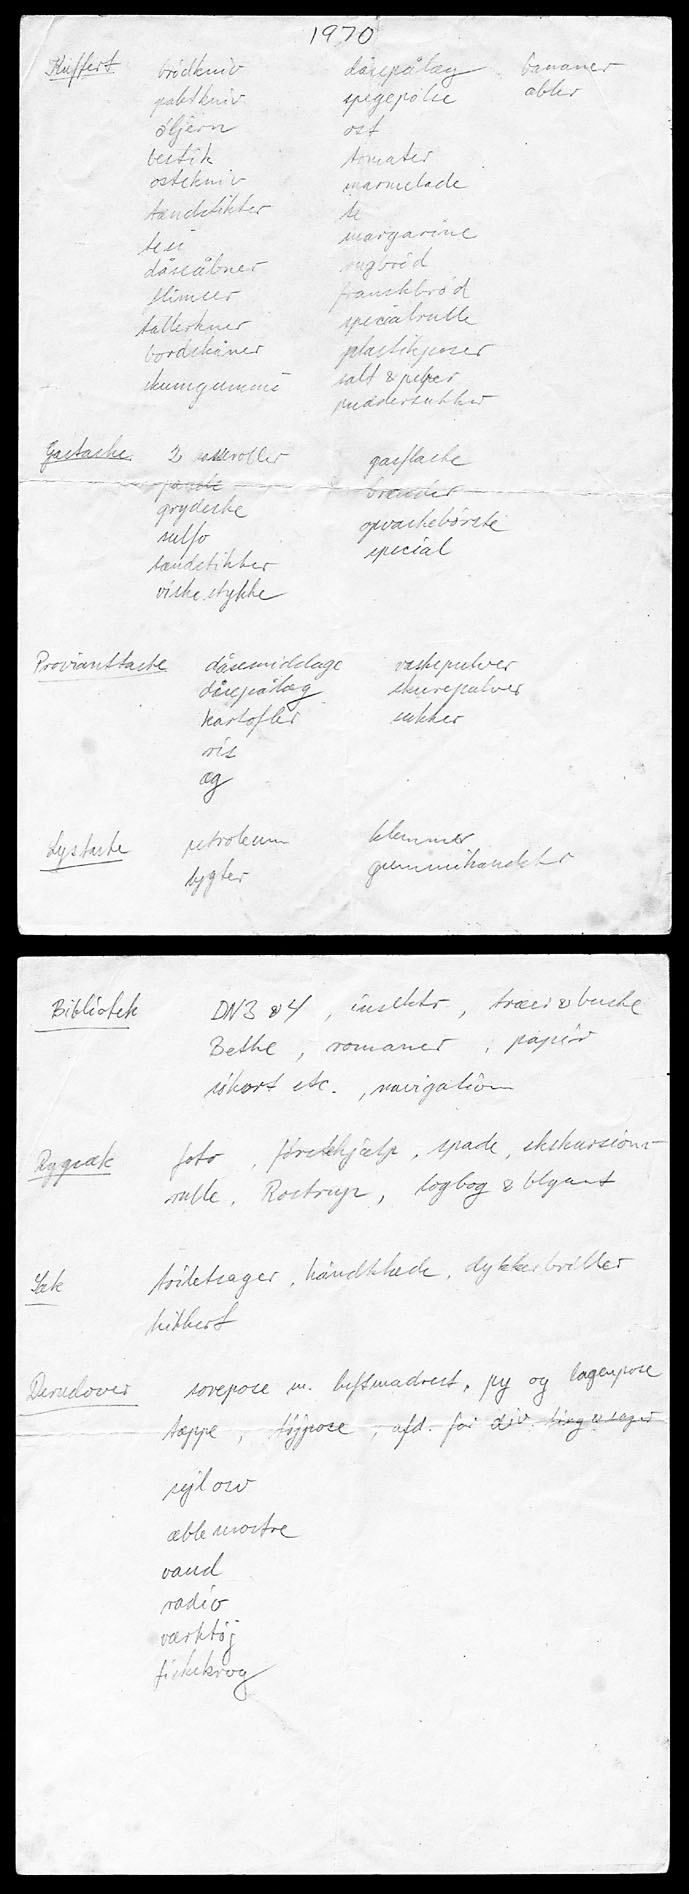 1970
Kuffert brødkniv dåsepålæg bananer
paletkniv spegepølse æbler
øljern ost
bestik tomater
ostekniv marmelade
tændstikker te
tesi margarine
dåseåbner rugbrød
franskbrød
tallerkner specialrulle
bordskåner plastikposer
skumgummi salt & peber
puddersukker
Gastaske 2 gasflaske
pande brænder
grydeske opvaskebørste
sulfo special
tændstikker
viskestykke
Provianttaske dåsemiddage vaskepulver
dåsepålæg skurepulver
kartofler sukker
ris
æg
Lystaske petroleum klemmer
lygter gummihandsker
Bibliotek DN3 & 4, insekter, træer & buske
Bethe, romaner, papir
søkort etc., navigation
Rygsæk foto, førstehjælp, spade, ekskursions-
rulle, Rostrup, logbog & blyant
Sæk toiletsager, håndklæde, dykkerbriller
kikkert
Derudover sovepose m. luftmadras, py og lagenpose
tæppe, tøjpose, afd. for div.
æblemostre
vand
radio
værktøj
fiskekrog